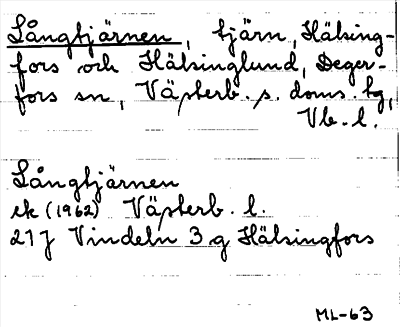 Långtjärnen, tjärn, Hälsing-
fors och Hälsinglund, Deger-
fors sn, Västerb. s. doms. tg,
Vb. l.
Långtjärnen
ek (1962) Västerb. l.
21J Vindeln 3 g Hälsingfors
ML-63